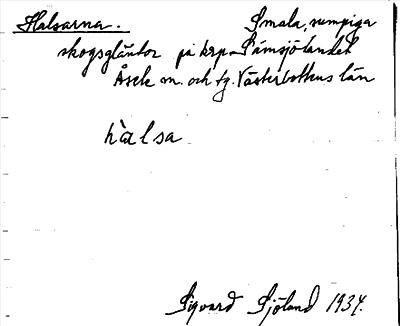 Halsarna. Smala, sumpiga
skogsgläntor på krp. Sämsjölandet
Åsele sn. och tg. Västerbottens län
hàlsa
Sigvard Sjöland 1934.